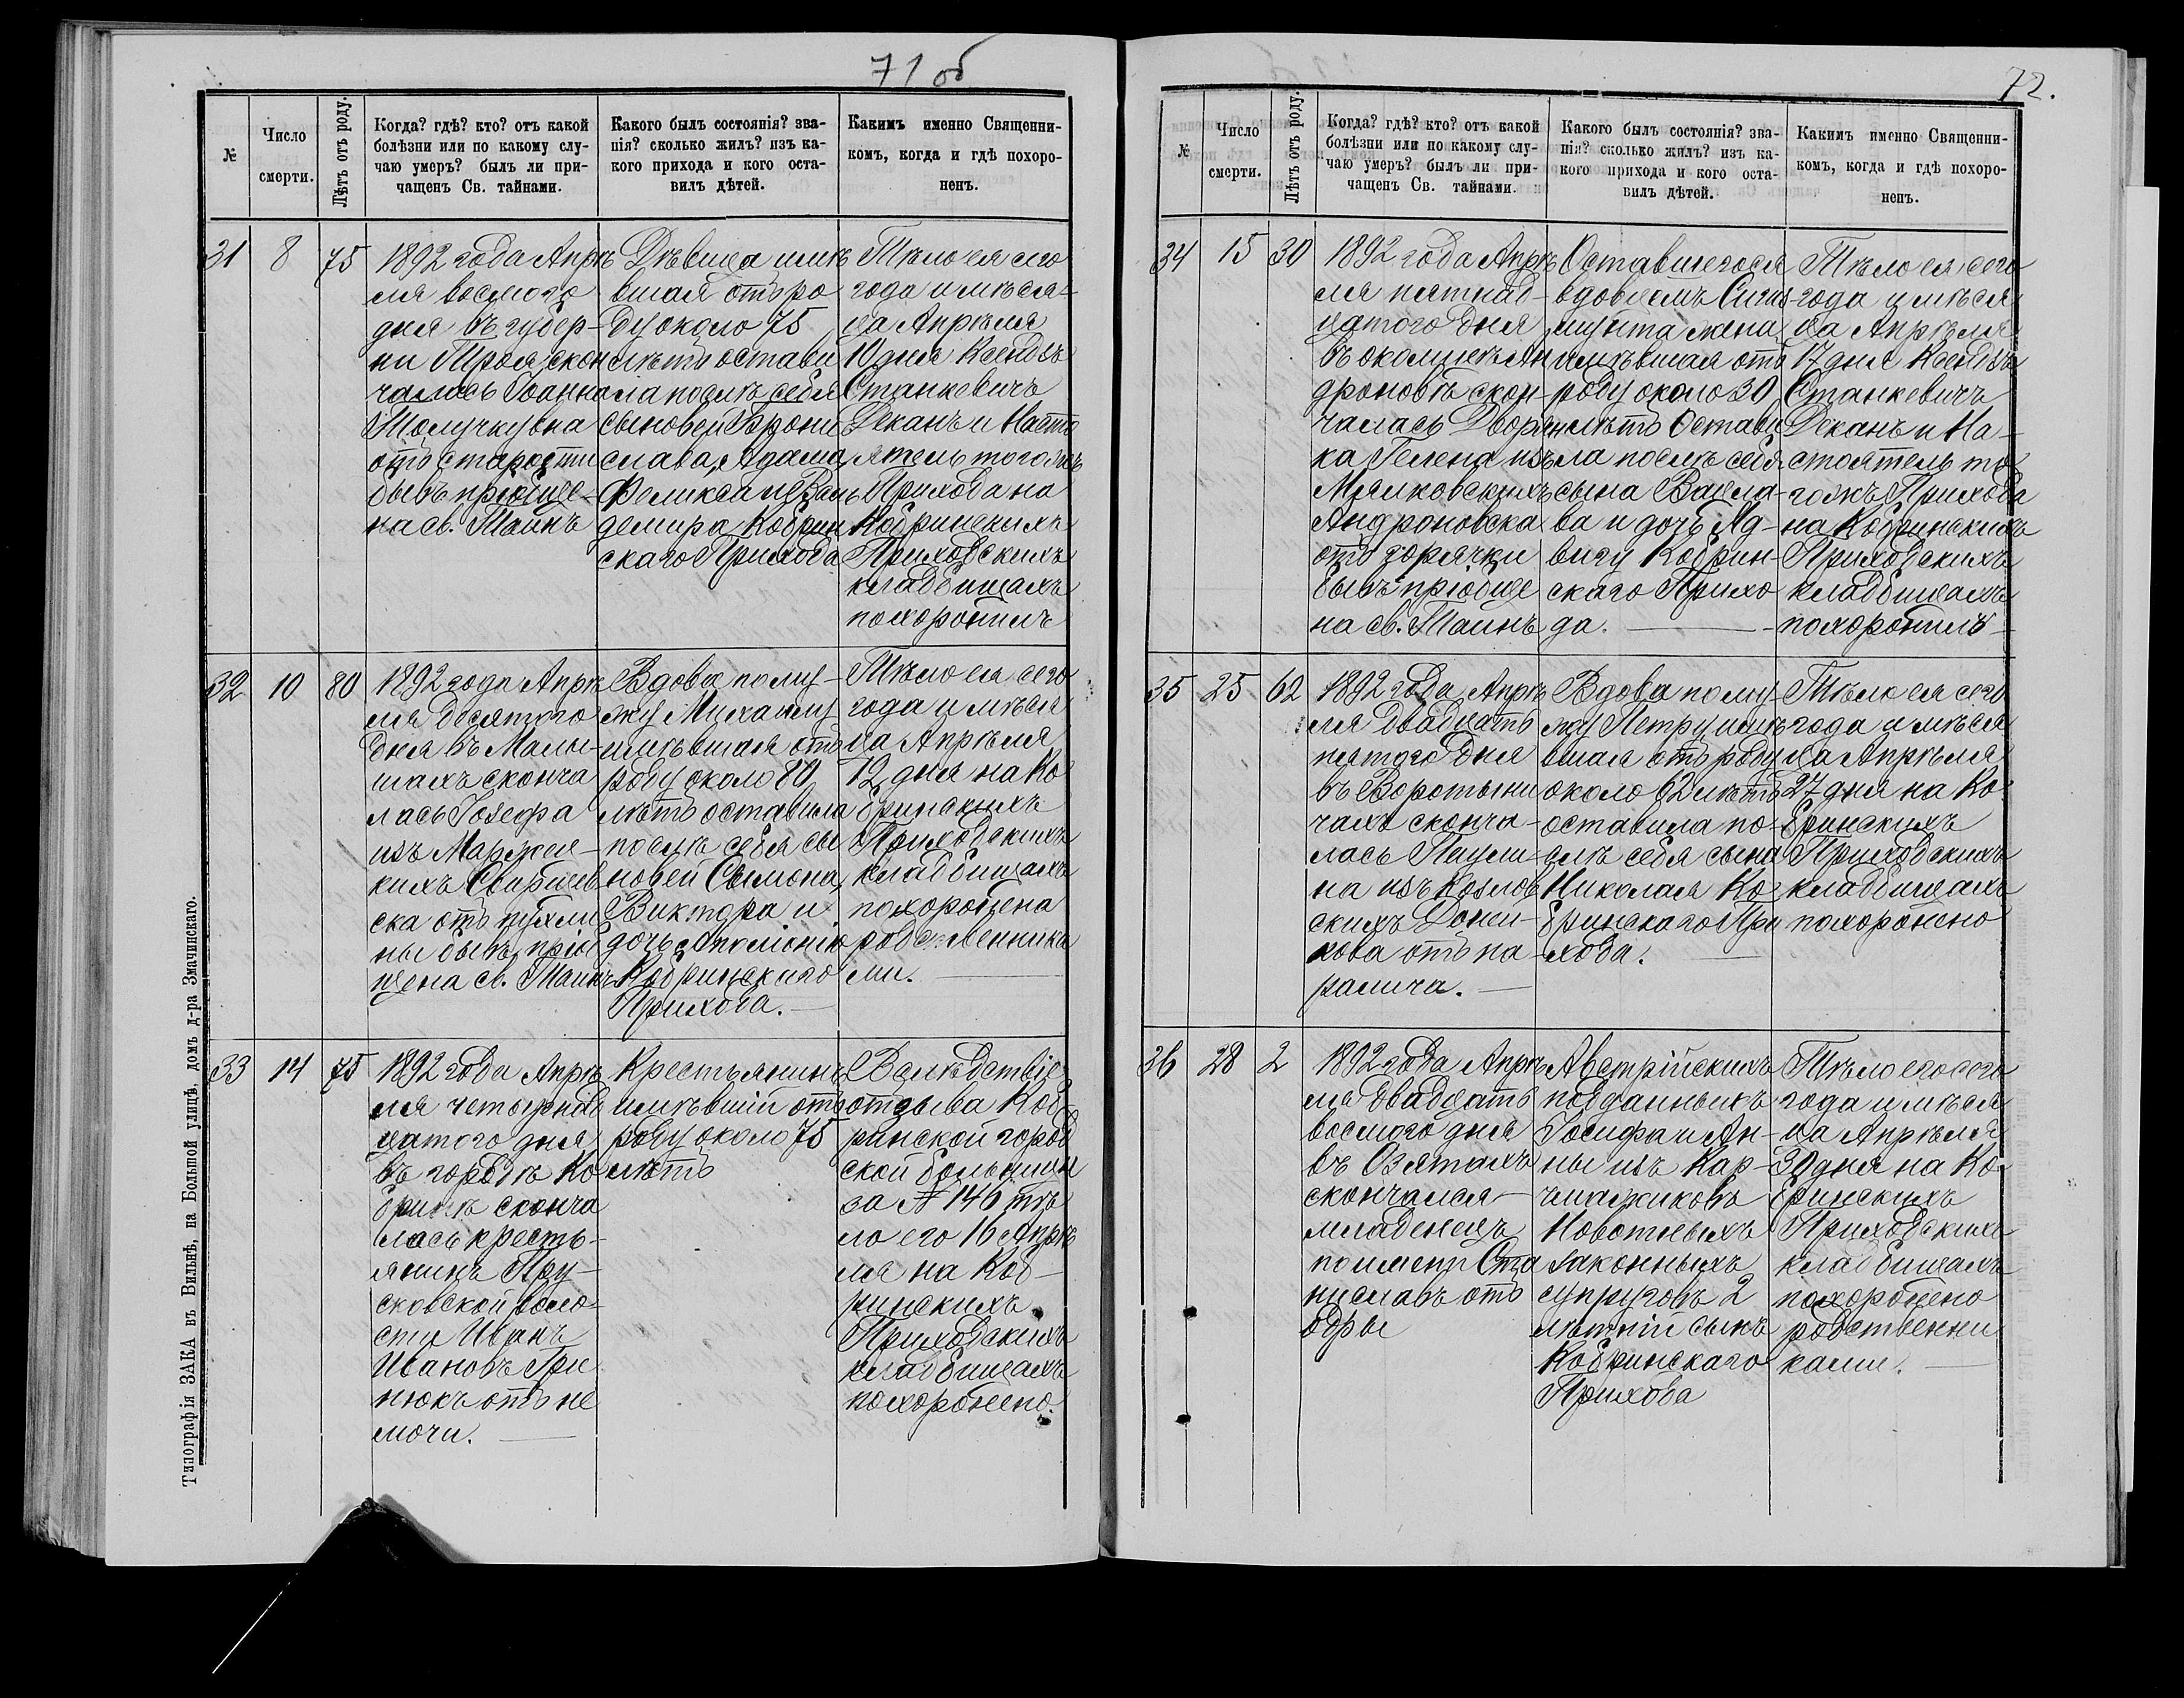 71 об
№
Число
смерти.
Лѣтъ отъ роду.
Когда? гдѣ? кто? отъ какой
болѣзни или по какому слу-
чаю умеръ? былъ ли при-
чащенъ Св. тайнами.
Какого былъ состоянія? зва-
нія? сколько жилъ? изъ ка-
кого прихода и кого оста-
вилъ дѣтей.
Какимъ именно Священни-
комъ, когда и гдѣ похоро-
ненъ.
31
8
75
1892 года Апрѣ
ля восмого
дня въ губер-
ни скон
чалась Іоанна
отъ старости
бывъ приобще-
на св. Таинъ
Дѣвица имѣ
вшая отъ ро
ду около 75
лѣтъ остави
ла послѣ себя
сыновей Брони
слава, Адама,
Феликса и Вла
демира Кобрин
скаго Прихода
Тѣло ея сего
года и мѣся-
ца Апрѣля
10 дня Ксендзъ
Станкевичъ
Деканъ и Насто
ятель тогожъ
Прихода на
Кобринскихъ
Приходскихъ
кладбищахъ
похоронилъ
32
10
80
1892 года Апрѣ
ля десятого
дня въ Малы-
шахъ сконча
лась Іозефа
изъ
кихъ
ска отъ пухли
ны бывъ пріоб
щена св. Таинъ
Вдова по му-
жу Михаилу
имѣвшая отъ
роду около 80
лѣтъ оставила
послѣ себя сы
новей Сымона,
Виктора и
дочь Аполонію
Кобринскаго
Прихода.
Тѣло ея сего
года и мѣся
ца Апрѣля
12 дня на Ко
бринскихъ
Приходскихъ
кладбищахъ
похоронена
родственника
ми.
33
14
75
1892 года Апрѣ
ля четырнад
цатого дня
въ городѣ Ко
бринѣ сконча
лась кресть-
янинъ Пру-
сковской воло-
сти Иванъ
Ивановъ Гри
нюкъ отъ не
мочи.
Крестьянинъ
имѣвшій отъ
роду около 75
лѣтъ
Вслѣдствіе
отзыва Коб-
ринской город
ской больницы
за № 146 тѣ
ло его 16 Апрѣ
ля на Коб-
ринскихъ
Приходскихъ
кладбищахъ
похоронено.
Типографія ЗАКА въ Вильнѣ, на Большой улицѣ, домъ д-ра Змачинскаго.
72.
№
Число
смерти.
Лѣтъ отъ роду.
Когда? гдѣ? кто? отъ какой
болѣзни или по какому слу-
чаю умеръ? былъ ли при-
чащенъ Св. тайнами.
Какого былъ состоянія? зва-
нія? сколько жилъ? изъ ка-
кого прихода и кого оста-
вилъ дѣтей.
Какимъ именно Священни-
комъ, когда и гдѣ похоро-
ненъ.
34
15
30
1892 года Апрѣ
ля пятнад-
цатого дня
въ околицѣ Ан
дроновѣ скон-
чалась Дворян
ка Гелена изъ
Мялковскихъ
Андроновска
отъ горячки
бывъ пріобще
на св. Таинъ
Оставшегося
вдовцемъ Сигиз-
мунта жена,
имѣвшая отъ
роду около 30
лѣтъ Остави
ла послѣ себя
сына Вацла-
ва и дочь Яд-
вигу Кобрин-
скаго Прихо
да.
Тѣло ея сего
года и мѣся
ца Апрѣля
17 дня Ксендзъ
Станкевичъ
Деканъ и На-
стоятель то
гожъ Прихода
на Кобринскихъ
Приходскихъ
кладбищахъ
похоронилъ
35
25
62
1892 года Апрѣ
ля двадцать
пятого дня
въ Воротыни
чахъ сконча-
лась Паули-
на изъ Козлов
скихъ
кова отъ па-
ралича.
Вдова по му
жу Петру имѣ
вшая отъ роду
около 62 лѣтъ
оставила по-
слѣ себя сына
Николая Ко-
бринскаго При
хода.
Тѣло ея сего
года и мѣся
ца Апрѣля
27 дня на Ко-
бринскихъ
Приходскихъ
кладбищахъ
похоронено
36
28
2
1892 года Апрѣ
ля двадцать
восмого дня
въ Озятахъ
скончался
младенецъ
по имени Ста
ниславъ отъ
одры
Австрійскихъ
подданныхъ
Іосифа и Ан-
ны изъ Кар-
Новотныхъ
законныхъ
супруговъ 2
лѣтній сынъ
Кобринскаго
Прихода
Тѣло его сего
года и мѣся
ца Апрѣля
30 дня на Ко-
бринскихъ
Приходскихъ
кладбищахъ
похоронено
родственни
ками.